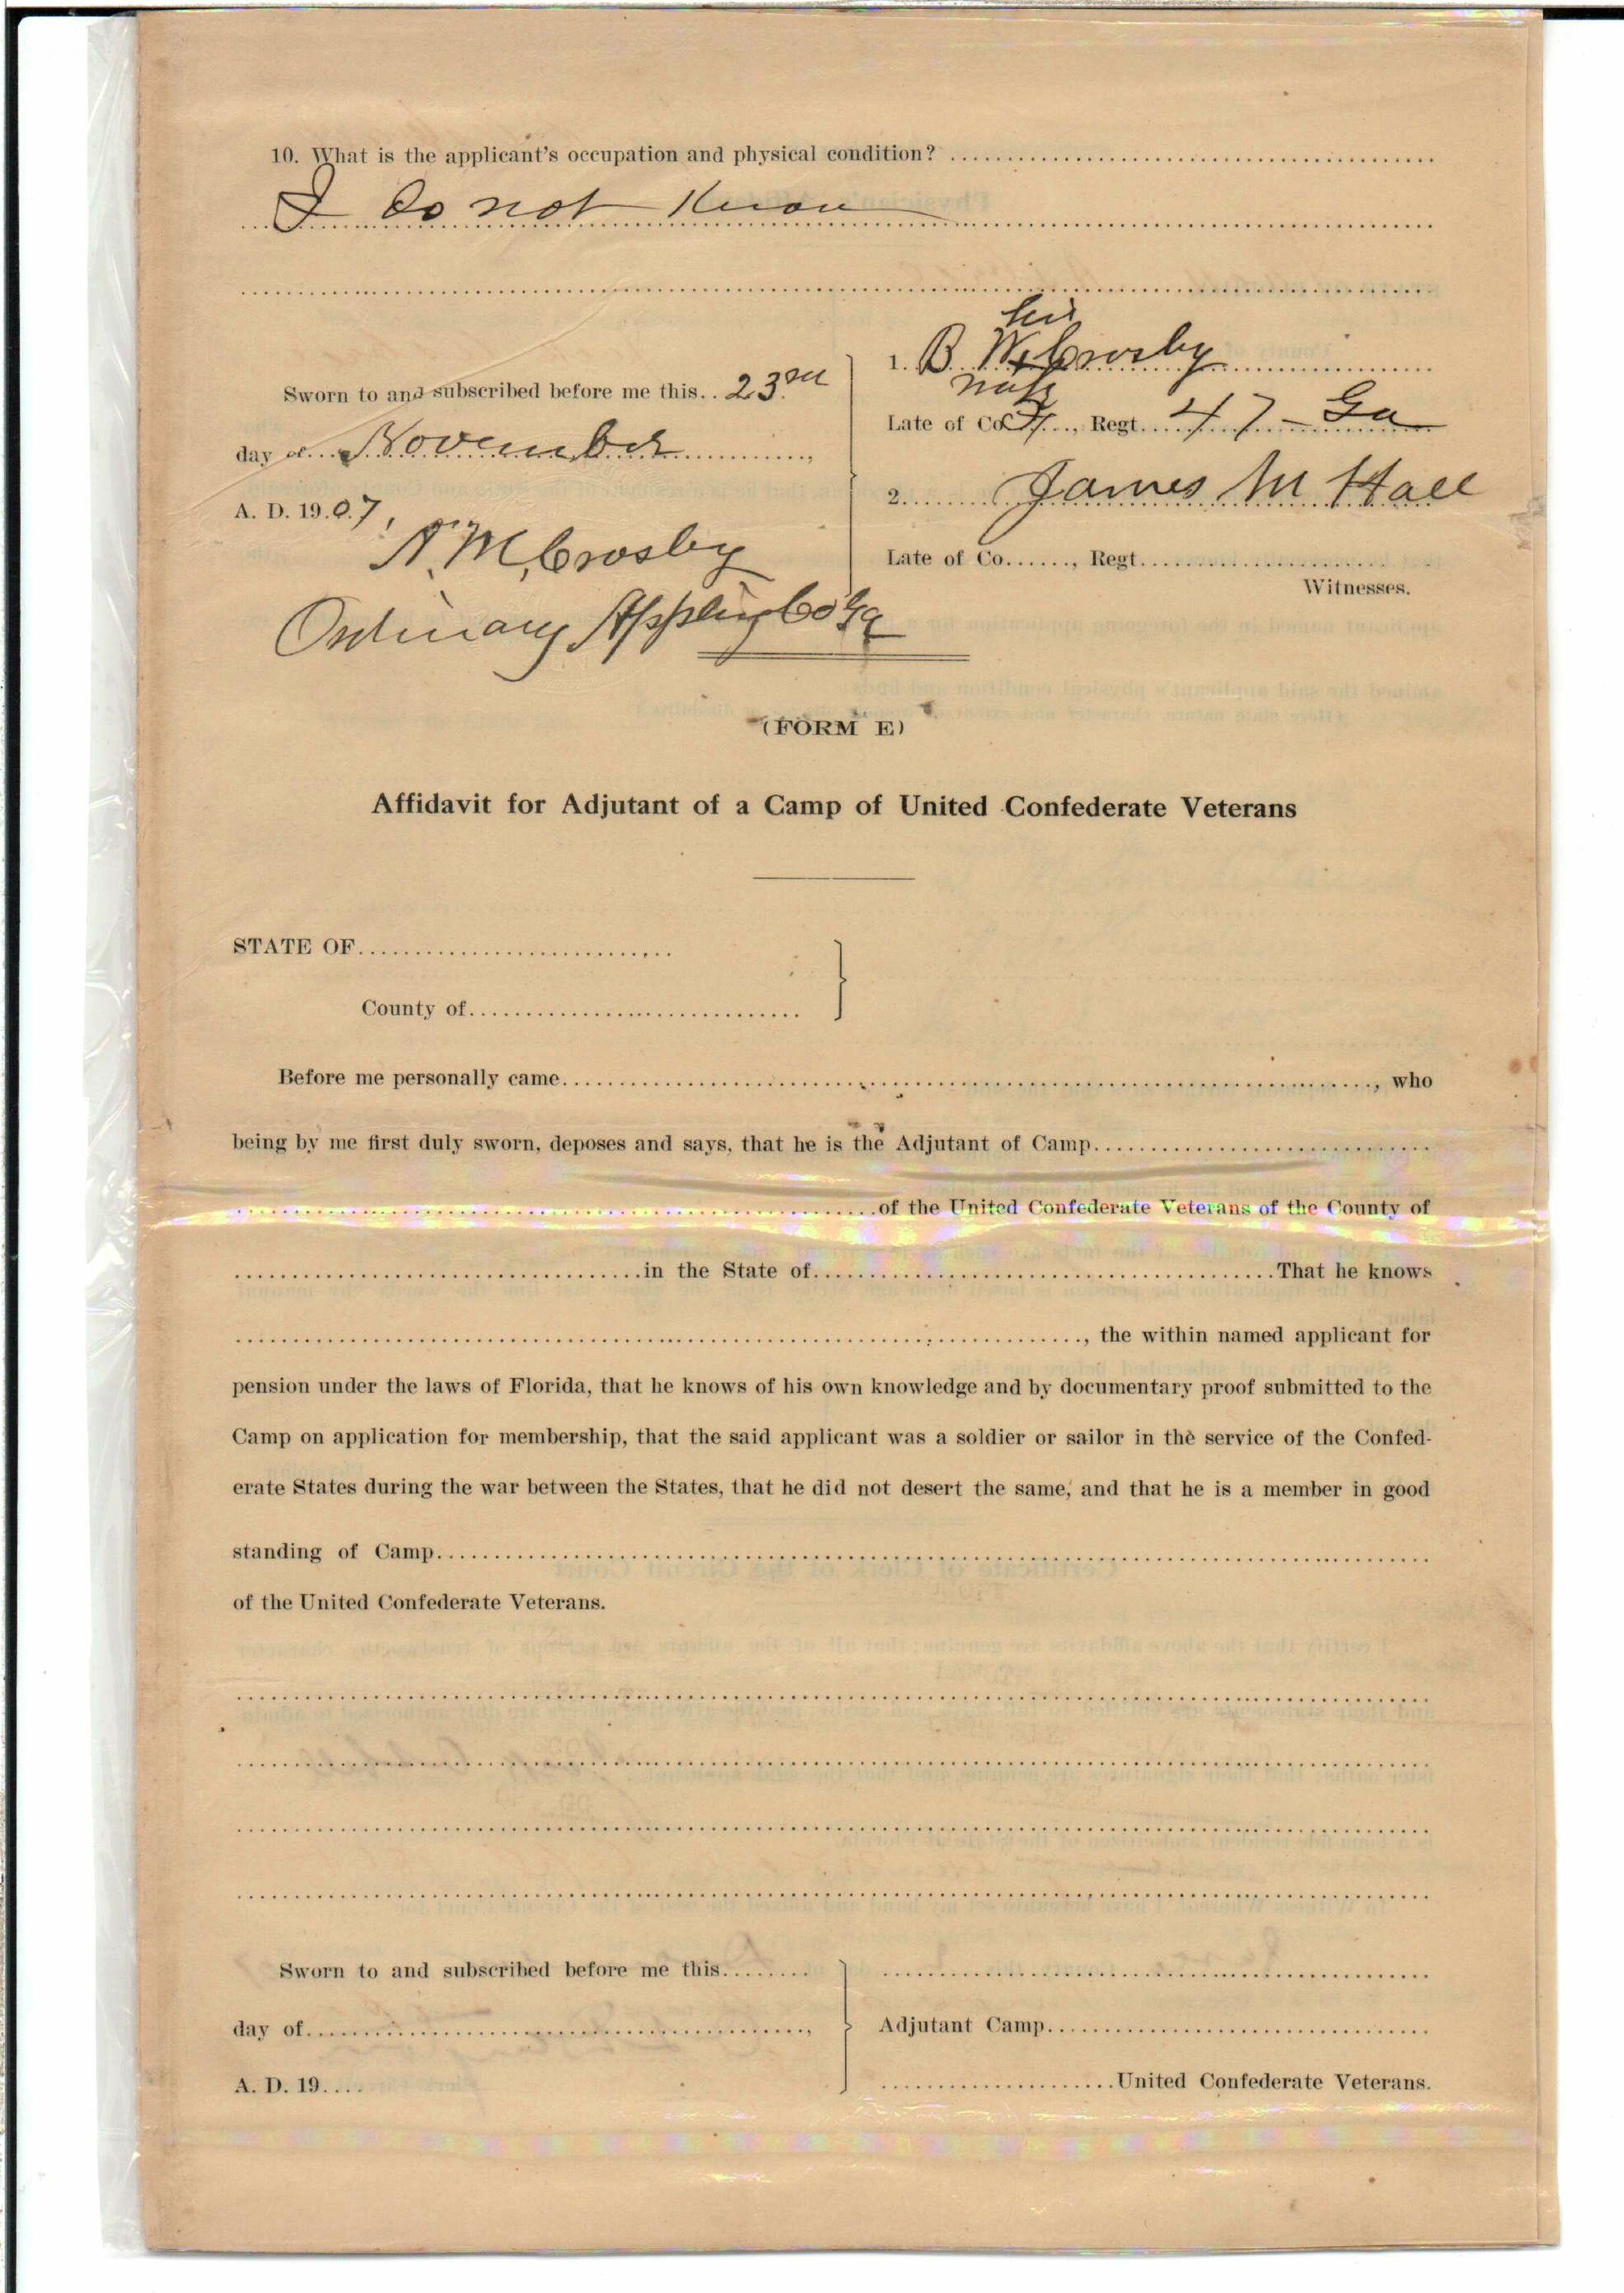 10. What is the applicant's occupation and physical condition? ........
I do not know
his
1. B. W. x Crosby
mark
Sworn to and subscribed before me this.. 23rd
Late of Co....., Regt.... 47 - Ga
day of... November ..........,
2........ James M Hall
A. D. 19.07,
Late of Co......, Regt........................
N. M. Crosby
Witnesses.
Ordinary Appling Co Ga
(FORM E)
Affidavit for Adjutant of a Camp of United Confederate Veterans
STATE OF............................
County of..............................
Before me personally came................................................................, who
being by me first duly sworn, deposes and says, that he is the Adjutant of Camp..............................
..........................................................of the United Confederate Veterans of the County of
....................................in the State of.........................................That he knows
............................................................................, the within named applicant for
pension under the laws of Florida, that he knows of his own knowledge and by documentary proof submitted to the
Camp on application for membership, that the said applicant was a soldier or sailor in the service of the Confed-
erate States during the war between the States, that he did not desert the same, and that he is a member in good
standing of Camp........................................................................................
of the United Confederate Veterans.
Sworn to and subscribed before me this........
day of.............................................,
Adjutant Camp..................................
A. D. 19....
.....................United Confederate Veterans.